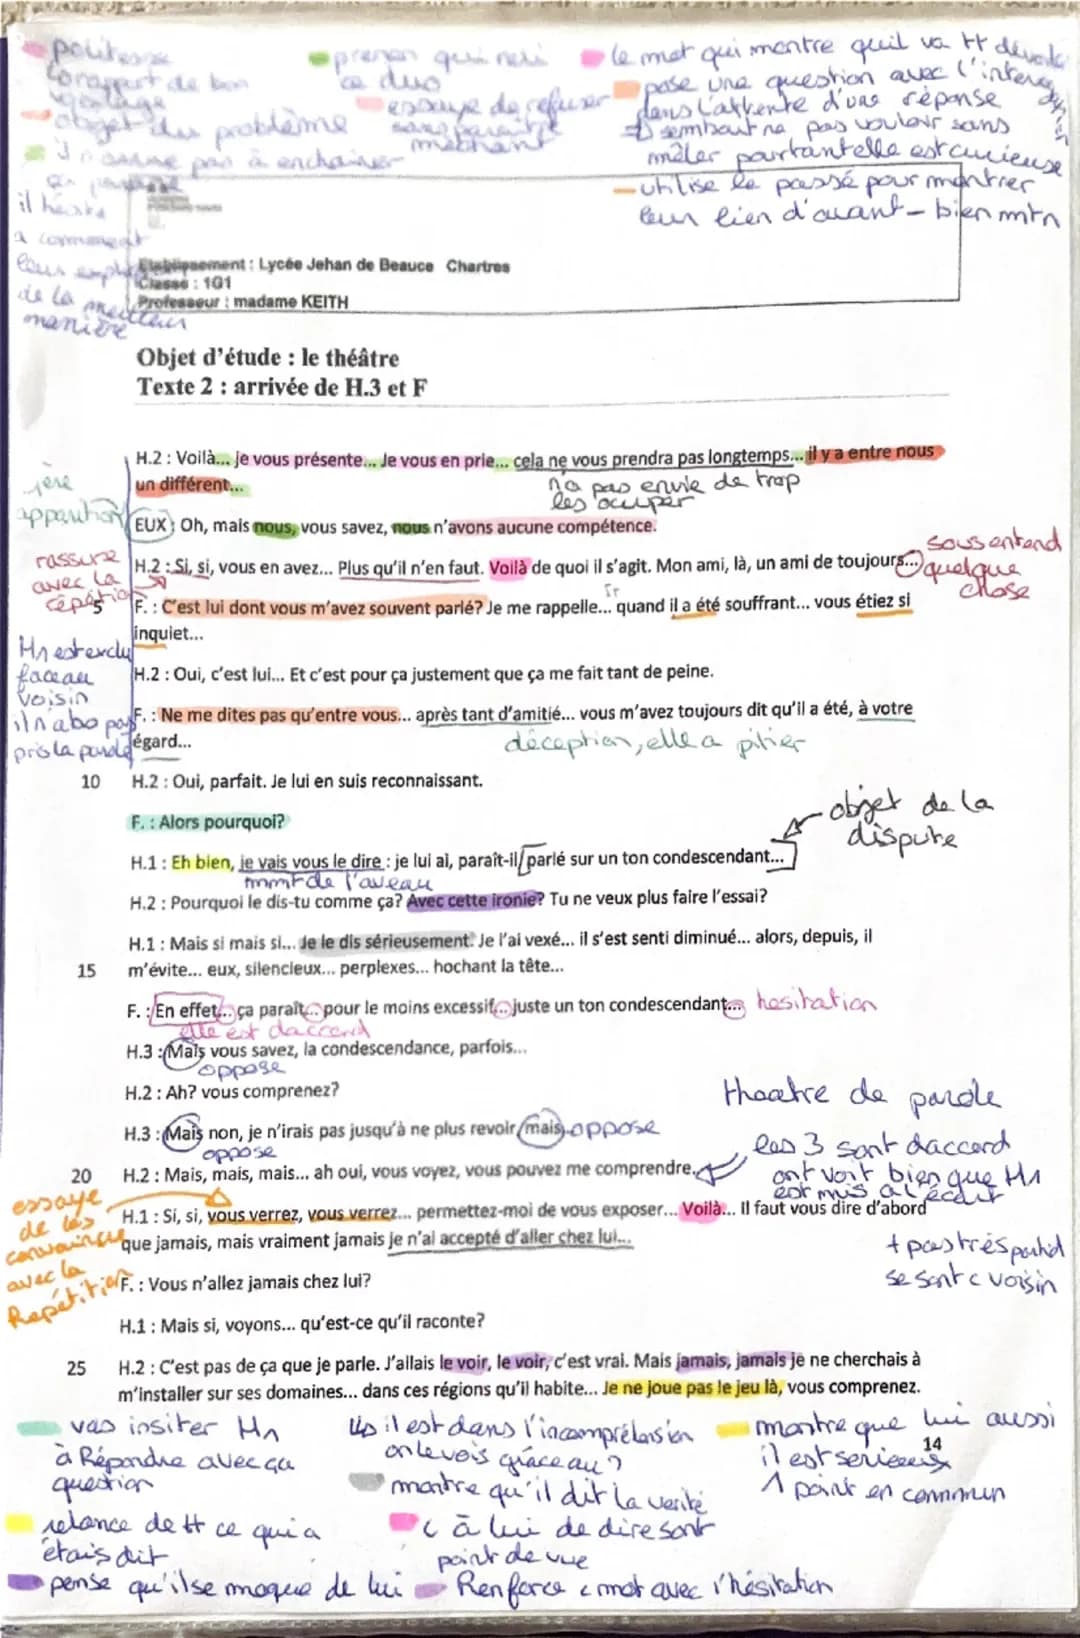 politesse
rapport de bon
objet du problème
prenon qui
ce duo
essaye de refuser
sans
méchant
le mot qui montre quil va tt dévoile
pose une question avec l'
dans l'attente d'une réponse
semblant ne pas vouloir sans
mêler pourtant elle est curieuse
utilise le passé pour montrer
leur lien d'avant - bien mtn
pas à enchainer
il hésite
a comment
leurs
de la meilleur
manière
Etablissement : Lycée Jehan de Beauce Chartres
Classe : 1G1
Professeur : madame KEITH
Objet d'étude : le théâtre
Texte 2 : arrivée de H.3 et F
H.2 : Voilà... je vous présente... Je vous en prie... cela ne vous prendra pas longtemps... il y a entre nous
un différent...
n'a pas envie de trop
les occuper
1ère
apparition
EUX : Oh, mais nous, vous savez, nous n'avons aucune compétence.
rassure
avec la
répétition
H.2 : Si, si, vous en avez... Plus qu'il n'en faut. Voilà de quoi il s'agit. Mon ami, là, un ami de toujours...
sous entend
quelque
chose
5 F. : C'est lui dont vous m'avez souvent parlé? Je me rappelle... quand il a été souffrant... vous étiez si
inquiet...
H1 est exclu
face au
voisin
il n a pas
pris la parole
H.2 : Oui, c'est lui... Et c'est pour ça justement que ça me fait tant de peine.
F. : Ne me dites pas qu'entre vous... après tant d'amitié... vous m'avez toujours dit qu'il a été, à votre
égard...
déception, elle a pitier
10 H.2 : Oui, parfait. Je lui en suis reconnaissant.
F. : Alors pourquoi?
objet de la
dispute
H.1 : Eh bien, je vais vous le dire : je lui ai, paraît-il, parlé sur un ton condescendant...
mmt de l'aveau
H.2 : Pourquoi le dis-tu comme ça? Avec cette ironie? Tu ne veux plus faire l'essai?
H.1 : Mais si mais si... Je le dis sérieusement. Je l'ai vexé... il s'est senti diminué... alors, depuis, il
15 m'évite... eux, silencieux... perplexes... hochant la tête...
F. : En effet... ça paraît... pour le moins excessif... juste un ton condescendant... hesitation
elle est daccord
H.3 : Mais vous savez, la condescendance, parfois...
oppose
H.2 : Ah? vous comprenez?
theatre de parole
H.3 : Mais non, je n'irais pas jusqu'à ne plus revoir, mais... oppose
oppose
les 3 sont daccord
ont voit bien que H1
est mis à l'écart
20 H.2 : Mais, mais, mais... ah oui, vous voyez, vous pouvez me comprendre.
essaye
de les
convaincre
avec la
Repetition
H.1 : Si, si, vous verrez, vous verrez... permettez-moi de vous exposer... Voilà... Il faut vous dire d'abord
que jamais, mais vraiment jamais je n'ai accepté d'aller chez lui...
+ pas très
se sont c voisin
F. : Vous n'allez jamais chez lui?
H.1 : Mais si, voyons... qu'est-ce qu'il raconte?
25 H.2 : C'est pas de ça que je parle. J'allais le voir, le voir, c'est vrai. Mais jamais, jamais je ne cherchais à
m'installer sur ses domaines... dans ces régions qu'il habite... Je ne joue pas le jeu là, vous comprenez.
14
vas insiter H1
à Répondre avec ça
question
relance de tt ce qui a
étais dit
pense qu'il se moque de lui
il est dans l'incompréhension
on le vois grâce au ?
montre qu'il dit la verité
c à lui de dire sont
point de vue
Renforce c mot avec l'hésitation
montre que lui aussi
il est serieux
1 point en commun